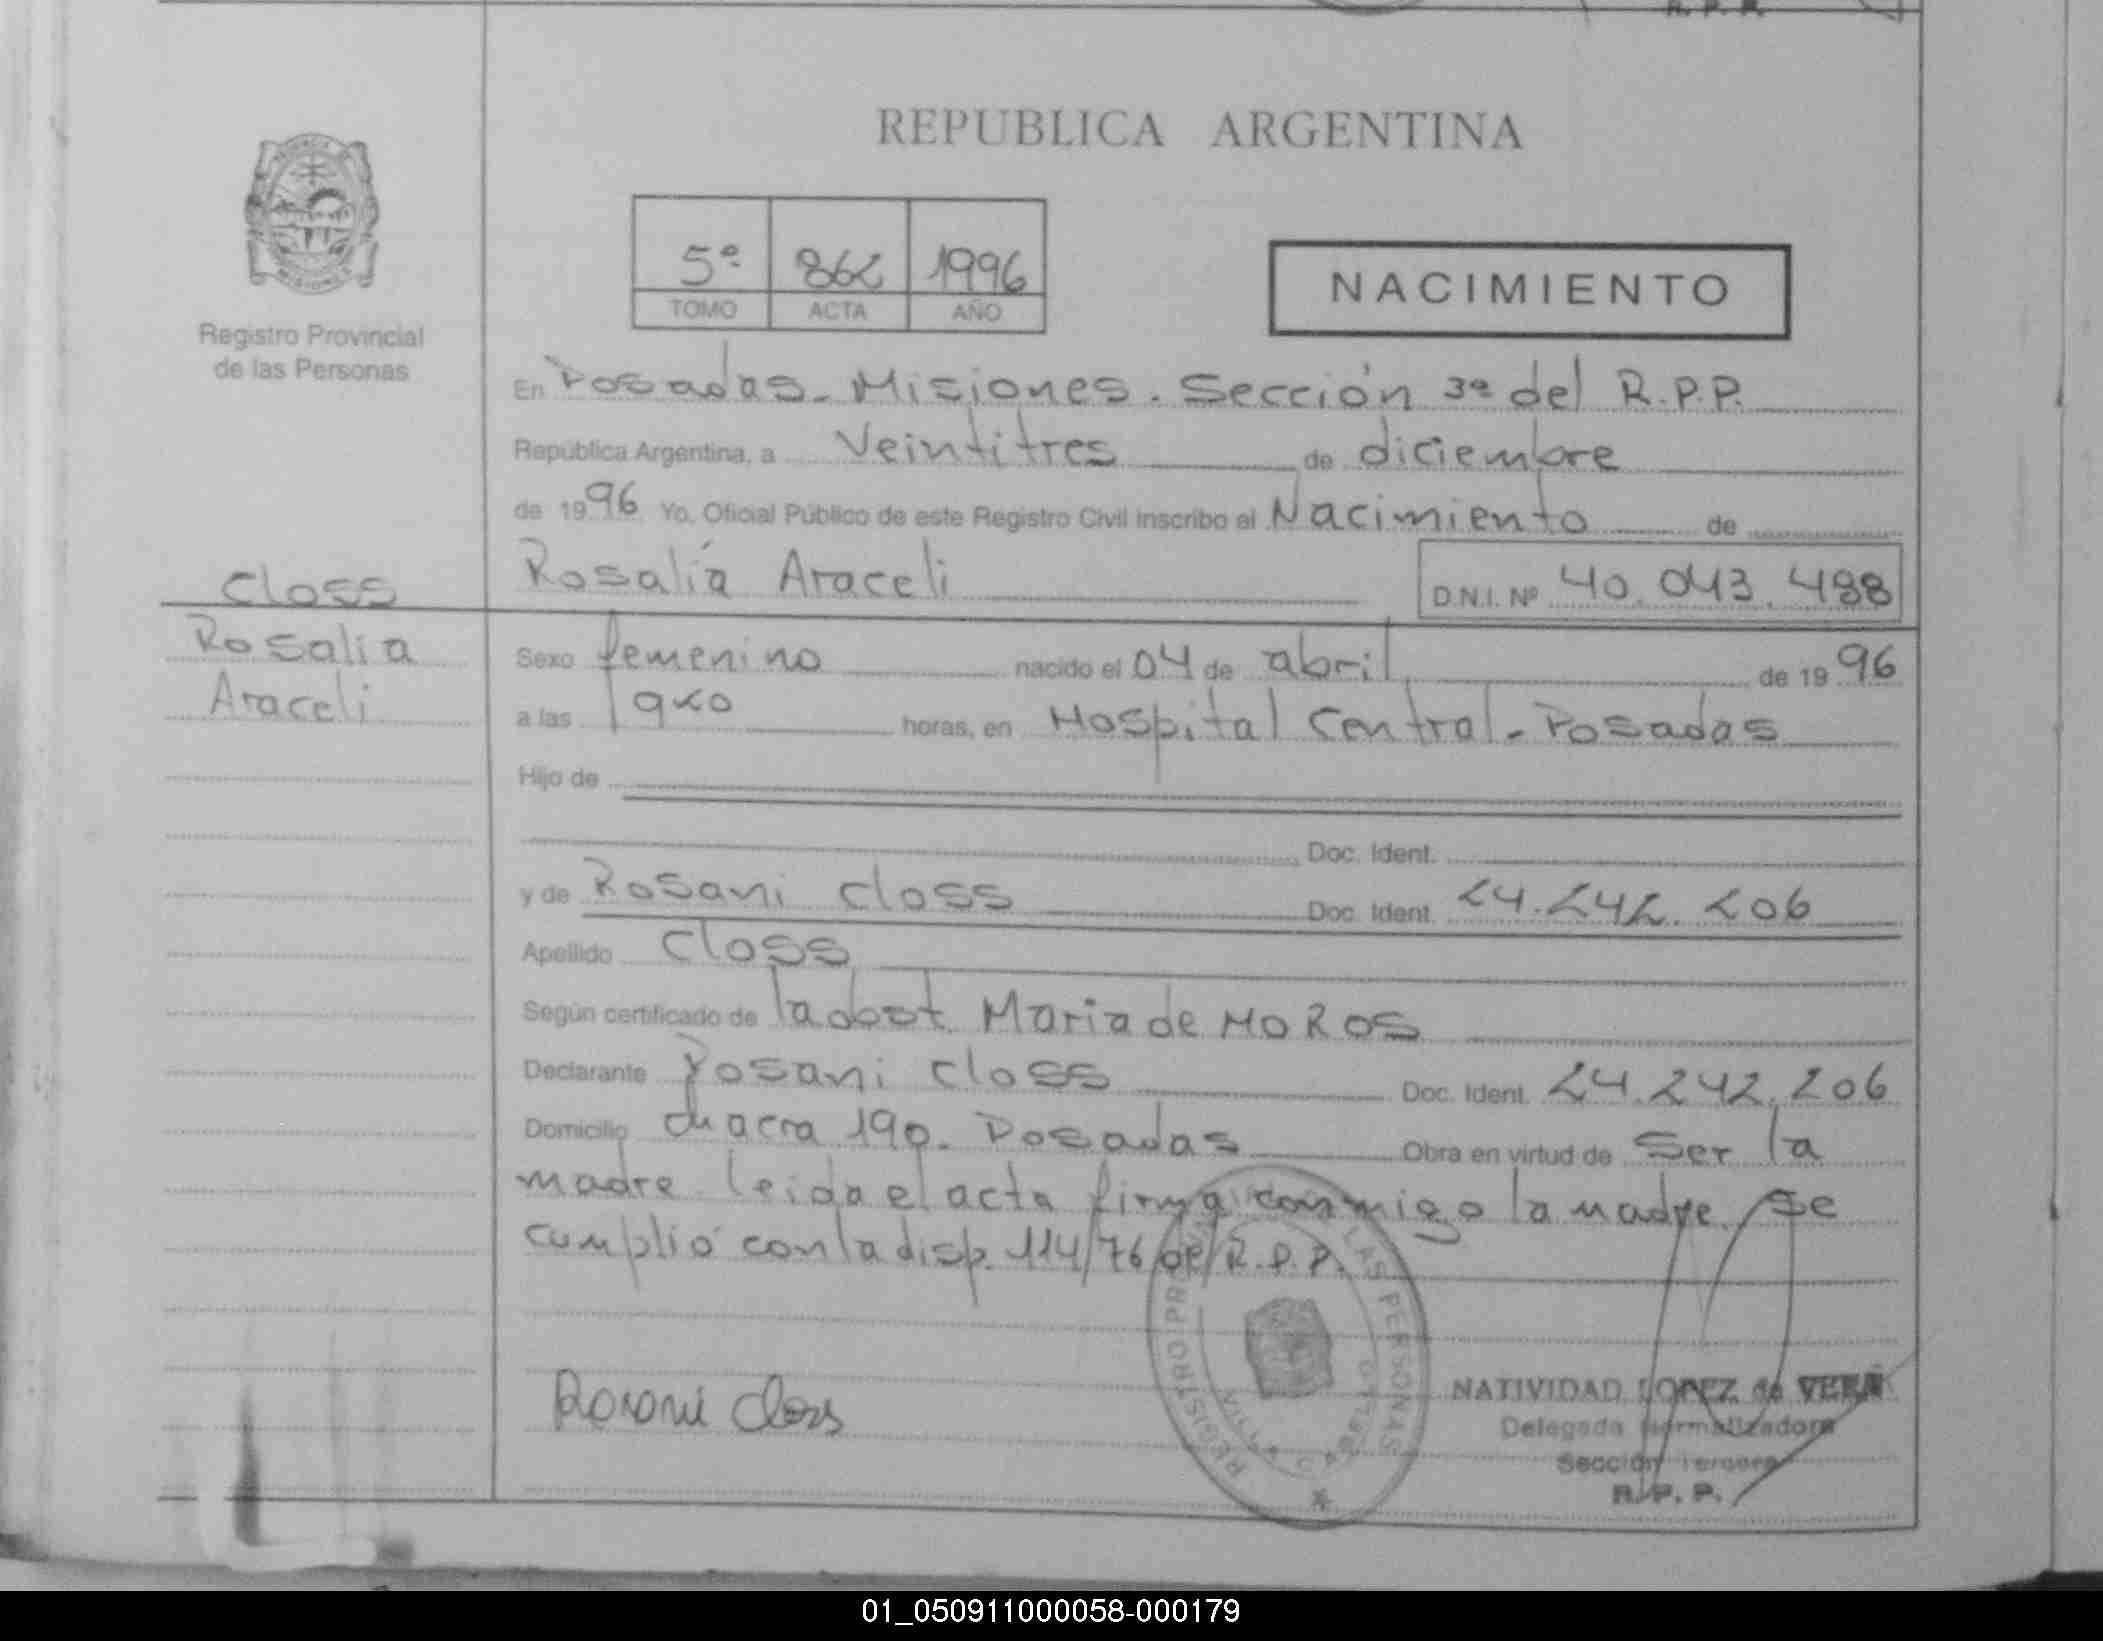 REPUBLICA ARGENTINA
5º 862 1996
TOMO ACTA AÑO
NACIMIENTO
Registro Provincial
de las Personas
En Posadas - Misiones. Sección 3ª del R.P.P.
República Argentina, a Veintitres de diciembre
de 1996 Yo, Oficial Público de este Registro Civil inscribo el Nacimiento de
Closs
Rosalía Araceli D.N.I. Nº 40.043.488
Rosalia
Araceli
Sexo femenino nacido el 04 de abril de 1996
a las 1920 horas, en Hospital Central - Posadas
Hijo de
Doc. Ident.
y de Rosani Closs Doc. Ident. 24.242.206
Apellido Closs
Según certificado de la obst. Maria de MOROS
Declarante Rosani Closs Doc. Ident. 24.242.206
Domicilio chacra 190 - Posadas Obra en virtud de Ser la
madre leida el acta firma conmigo la madre. Se
cumplió con la disp. 114/76 del R.P.P.
Rosani Closs
REGISTRO LAS PERSONAS
NATIVIDAD LOPEZ de VERA
Delegada Normalizadora
Sección Tercera
R. P. P.
01_050911000058-000179